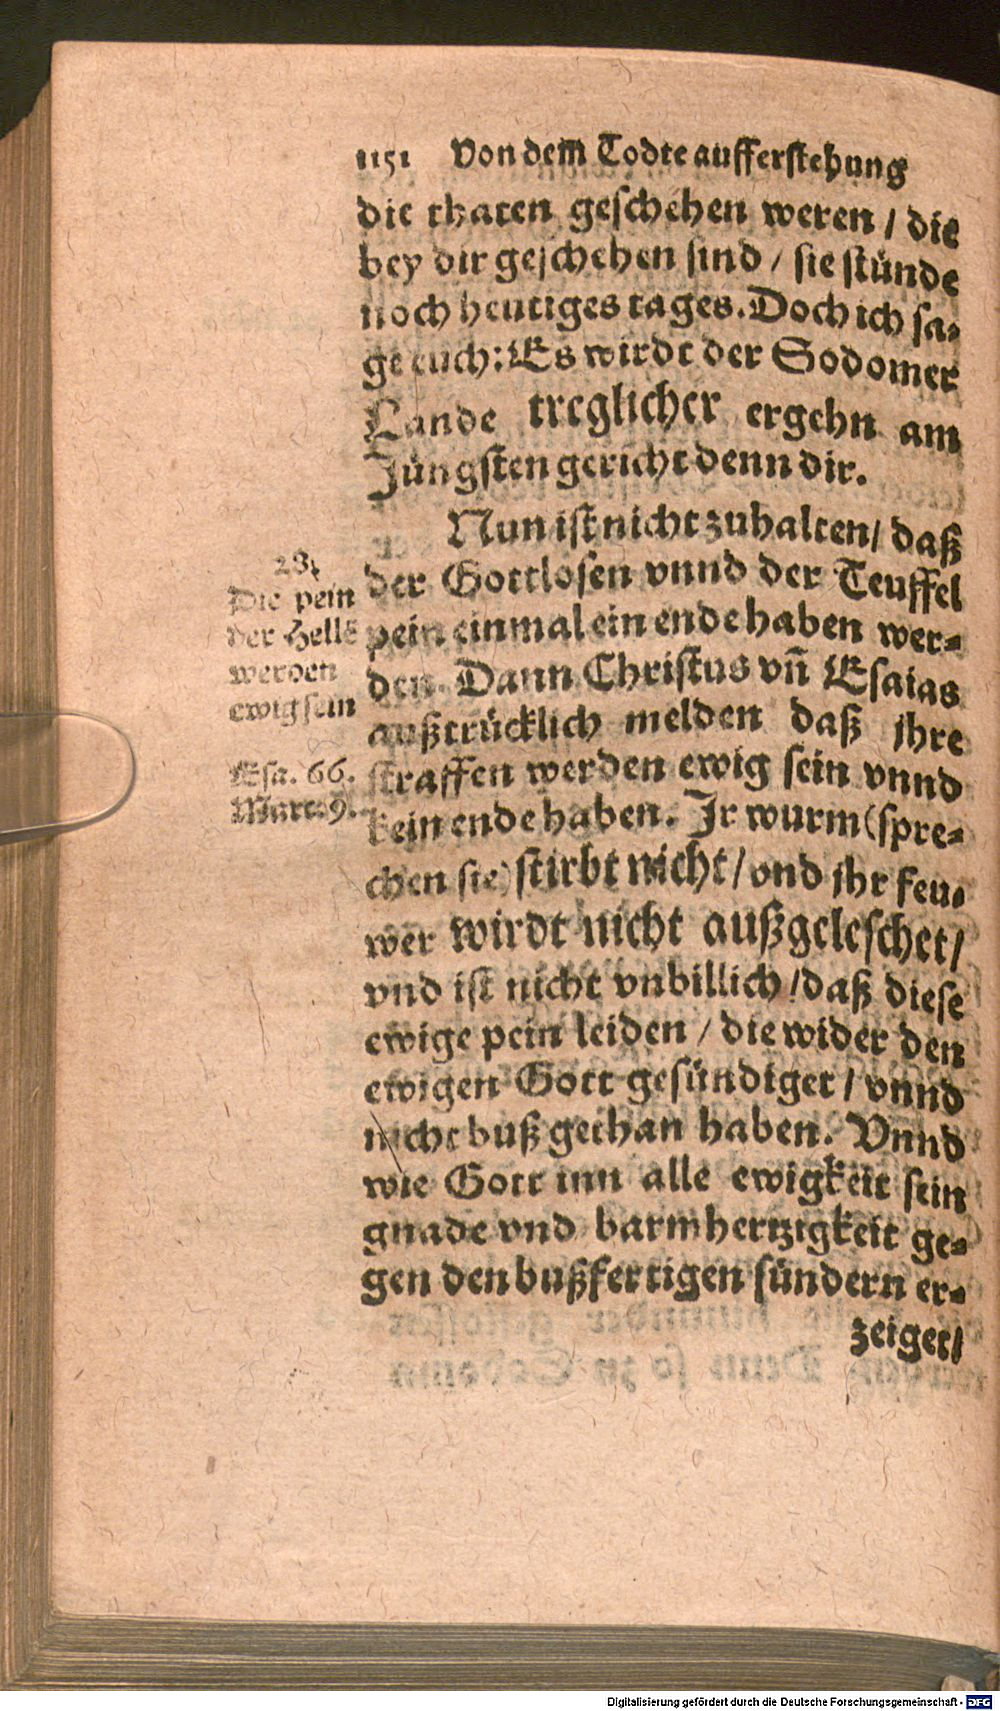 1151 Von dem Todte aufferstehung
die thaten geschehen weren / die
bey dir geschehen sind / sie stünde
noch heutiges tages. Doch ich sa-
ge euch: Es wirdt der Sodomer
Lande treglicher ergehn am
Jüngsten gericht denn dir.
Nun ist nicht zuhalten / daß
der Gottlosen vnnd der Teuffel
pein einmal ein ende haben wer-
den. Dann Christus vñ Esaias
außtrücklich melden daß ihre
straffen werden ewig sein vnnd
kein ende haben. Jr wurm (spre-
chen sie) stirbt nicht / vnd ihr feu-
wer wirdt nicht außgeleschet /
vnd ist nicht vnbillich / daß diese
ewige pein leiden / die wider den
ewigen Gott gesündiget / vnnd
nicht buß gethan haben. Vnnd
wie Gott inn alle ewigkeit sein
gnade vnd barmhertzigkeit ge-
gen den bußfertigen sündern er-
zeiget /
28.
Die pein
der Hellē
werden
ewig sein
Esa. 66.
Marc. 9.
Digitalisierung gefördert durch die Deutsche Forschungsgemeinschaft - DFG